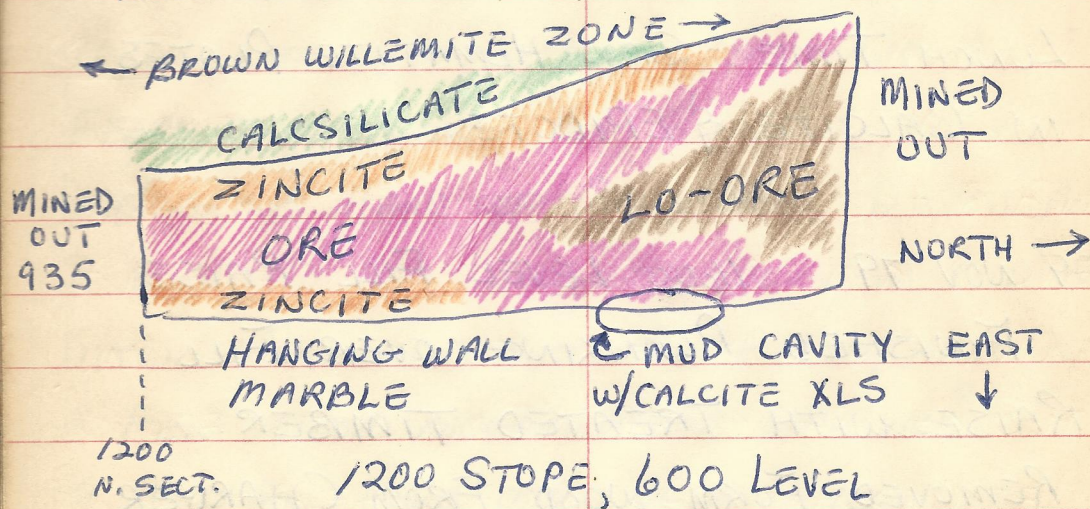 ← BROWN WILLEMITE ZONE →
CALCSILICATE
MINED
OUT
ZINCITE
MINED
OUT
935
ORE
LO-ORE
NORTH →
ZINCITE
HANGING WALL
MARBLE
MUD CAVITY
W/CALCITE XLS
EAST
↓
1200
N. SECT.
1200 STOPE, 600 LEVEL